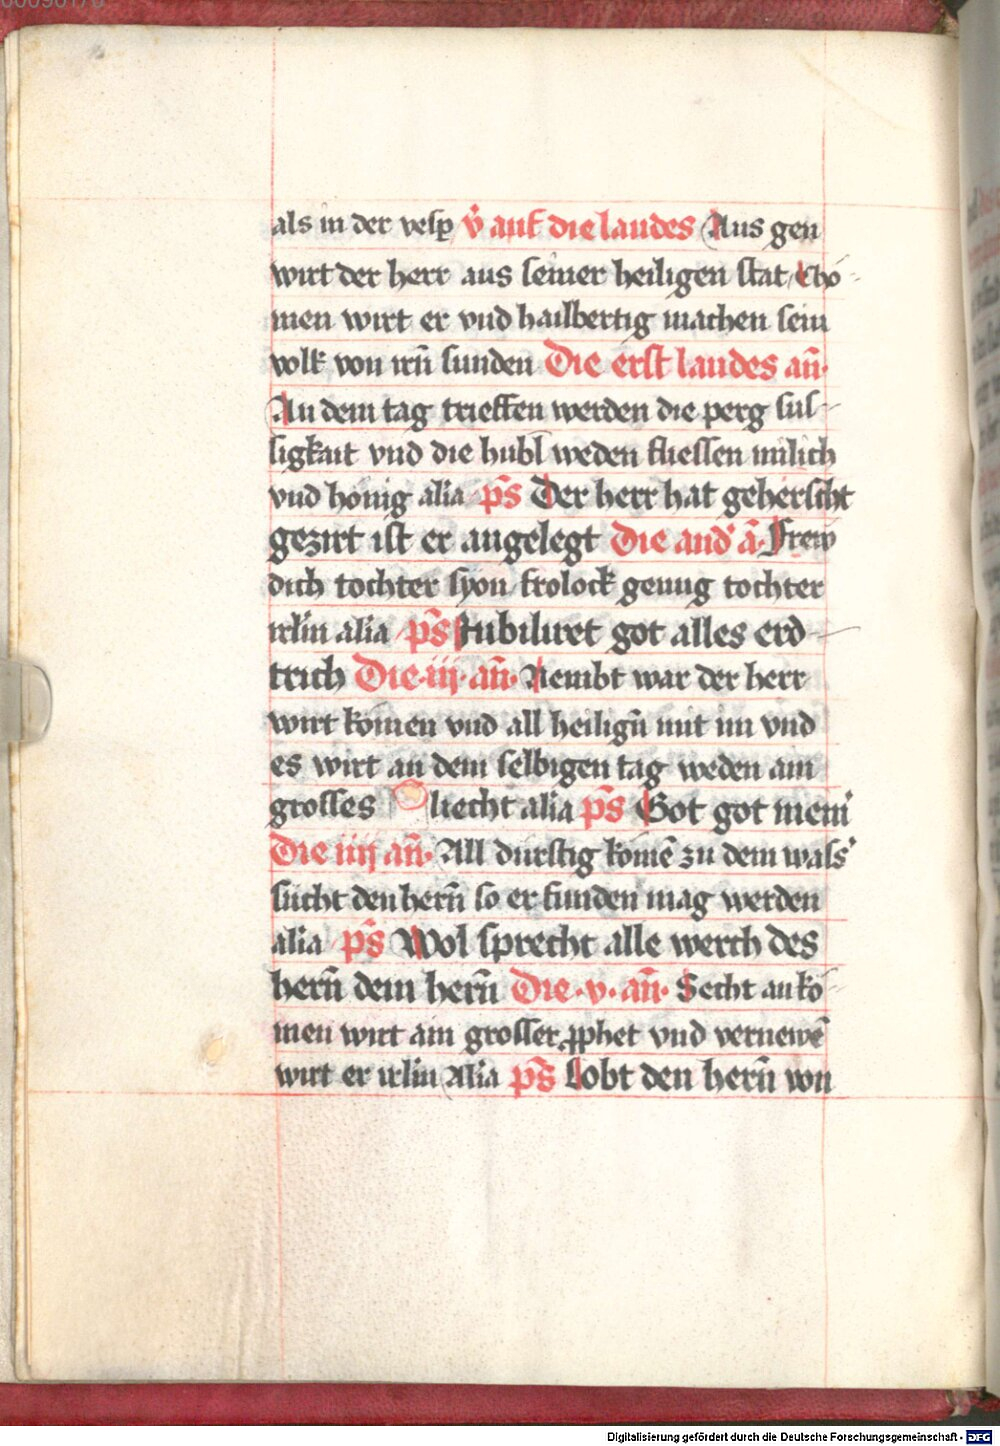 als in der vesp v̄ auf die laudes Aus gen
wirt der herr aus seiner heiligen stat Cho-
men wirt er vnd hailbertig machen sein
volk von irn̄ sunden Die erst laudes an̄·
An dem tag trieffen werden die perg sus-
sigkait vnd die hubl weden fliessen milich
vnd honig alia ps̄ Der herr hat geherscht
gezirt ist er angelegt Die and' ā· Frew
dich tochter syon frolock genug tochter
irl̄m alia ps̄ Jubiliret got alles erd-
trich Die·iij·an̄· Nembt war der herr
wirt komen vnd all heilign̄ mit im vnd
es wirt an dem selbigen tag weden ain
grosses liecht alia ps̄ Got got mein
Die iiij an̄· All durstig komē zu dem wass'
sucht den hern̄ so er funden mag werden
alia ps̄ Wol sprecht alle werch des
hern̄ dem hern̄ Die·v·an̄· Secht an ko-
men wirt ain grosser ꝓphet vnd vernewē
wirt er irl̄m Alia ps̄ Lobt den hern̄ von
Digitalisierung gefördert durch die Deutsche Forschungsgemeinschaft - DFG